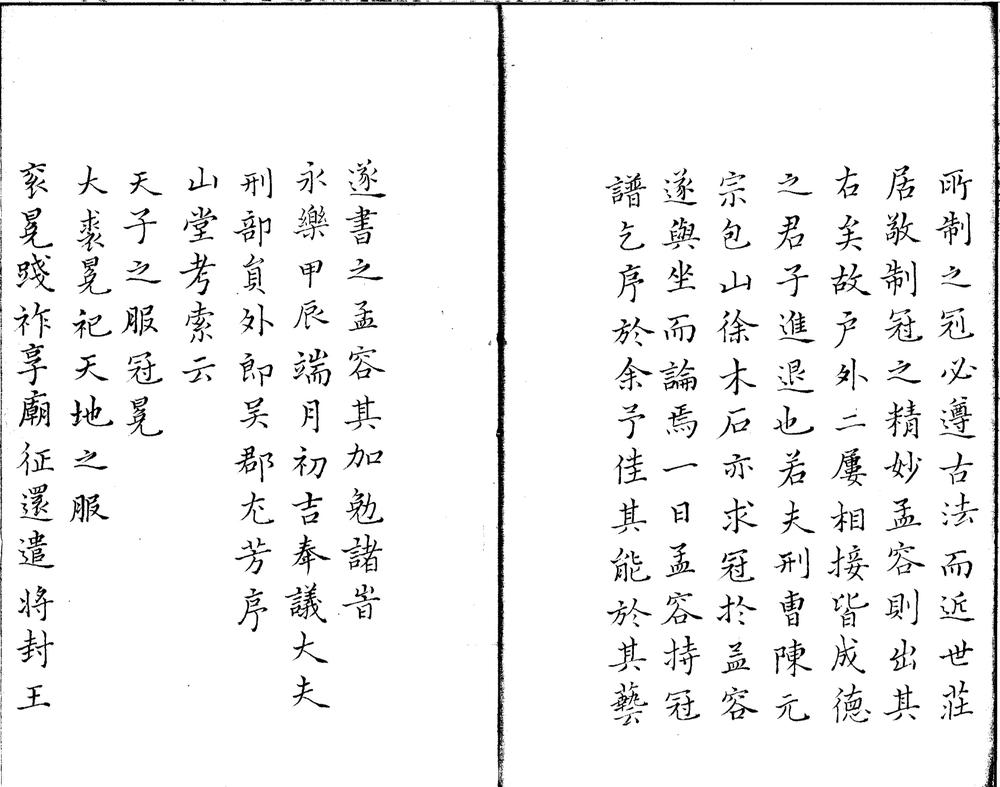 所制之冠必遵古法而近世莊
居敬制冠之精妙孟容則出其
右矣故户外二屨相接皆成德
之君子進退也若夫刑曹陳元
宗包山徐木石亦求冠於孟容
遂與坐而論焉一日孟容持冠
譜乞序於余予佳其能於其藝
遂書之孟容其加勉諸旹
永樂甲辰端月初吉奉議大夫
刑部員外郎吴郡尤芳序
山堂考索云
天子之服冠冕
大裘冕祀天地之服
衮冕踐祚享廟征還遣將封王